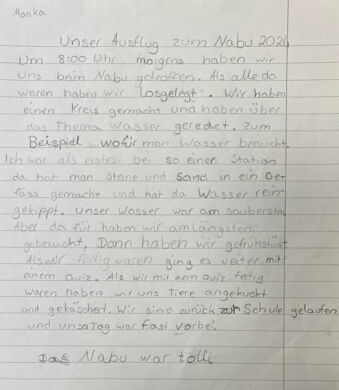 Monika
Unser Ausflug zum Nabu 2024
Um 8:00 Uhr morgens haben wir
uns beim Nabu getroffen. Als alle da
waren haben wir losgelegt. Wir haben
einen Kreis gemacht und haben über
das Thema Wasser geredet. Zum
Beispiel wofür man Wasser braucht.
Ich war als erstes bei so einer Station
da hat man Steine und Sand in ein Ge-
fäss gemacht und hat da Wasser rein-
gekippt. Unser Wasser war am saubersten
Aber da für haben wir am längsten
gebraucht. Dann haben wir gefrühstückt
Als wir fertig waren ging es weiter mit
einem Quiz. Als wir mit dem Quiz fertig
waren haben wir uns Tiere angekuckt
und gekäschert. Wir sind zurück zur Schule gelaufen
und unsa Tag war fast vorbei.
Das Nabu war toll.